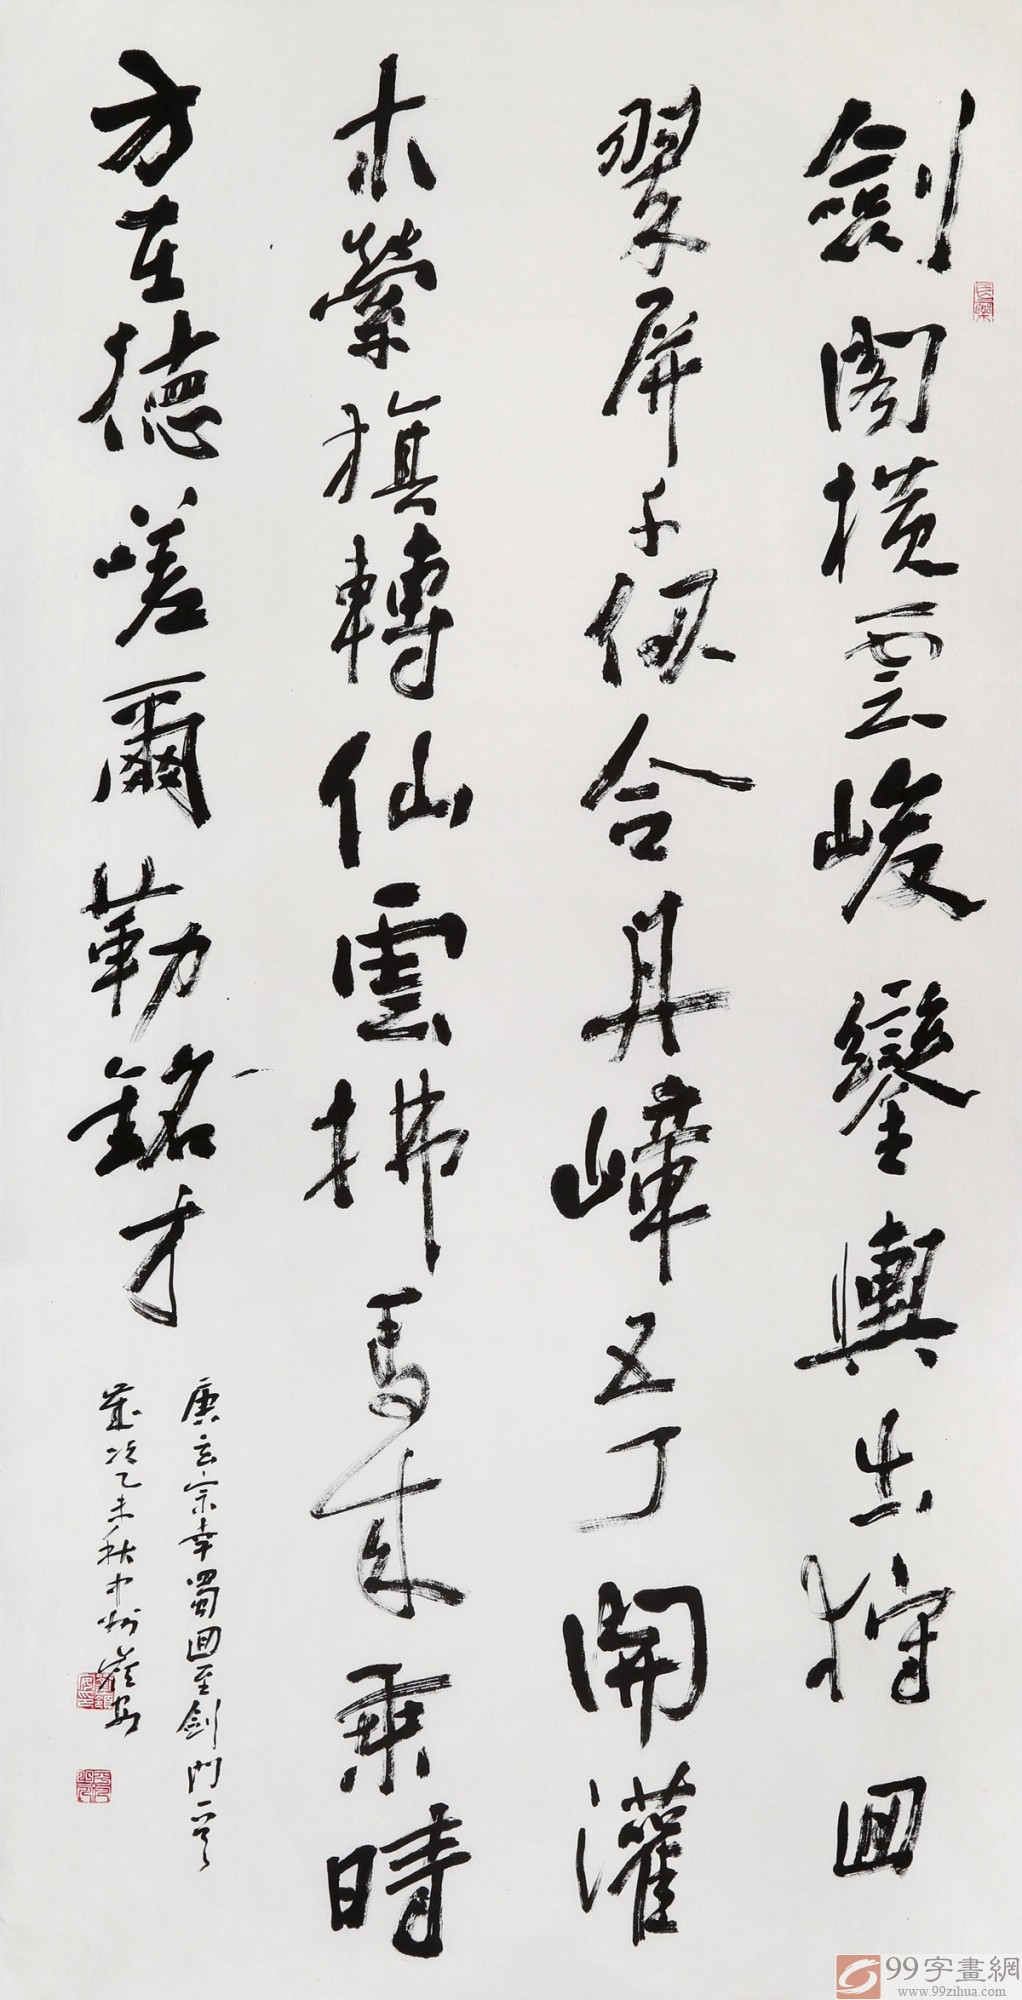 劍閣橫雲峻鑾輿出狩囬
翠屏千仞合丹嶂五丁開灌
木縈旗轉仙雲拂馬來乘時
方在德嗟爾勒銘才
唐玄宗幸蜀囬至劍門一首
歲次乙未秋中州
99字畫網
www.99zihua.com